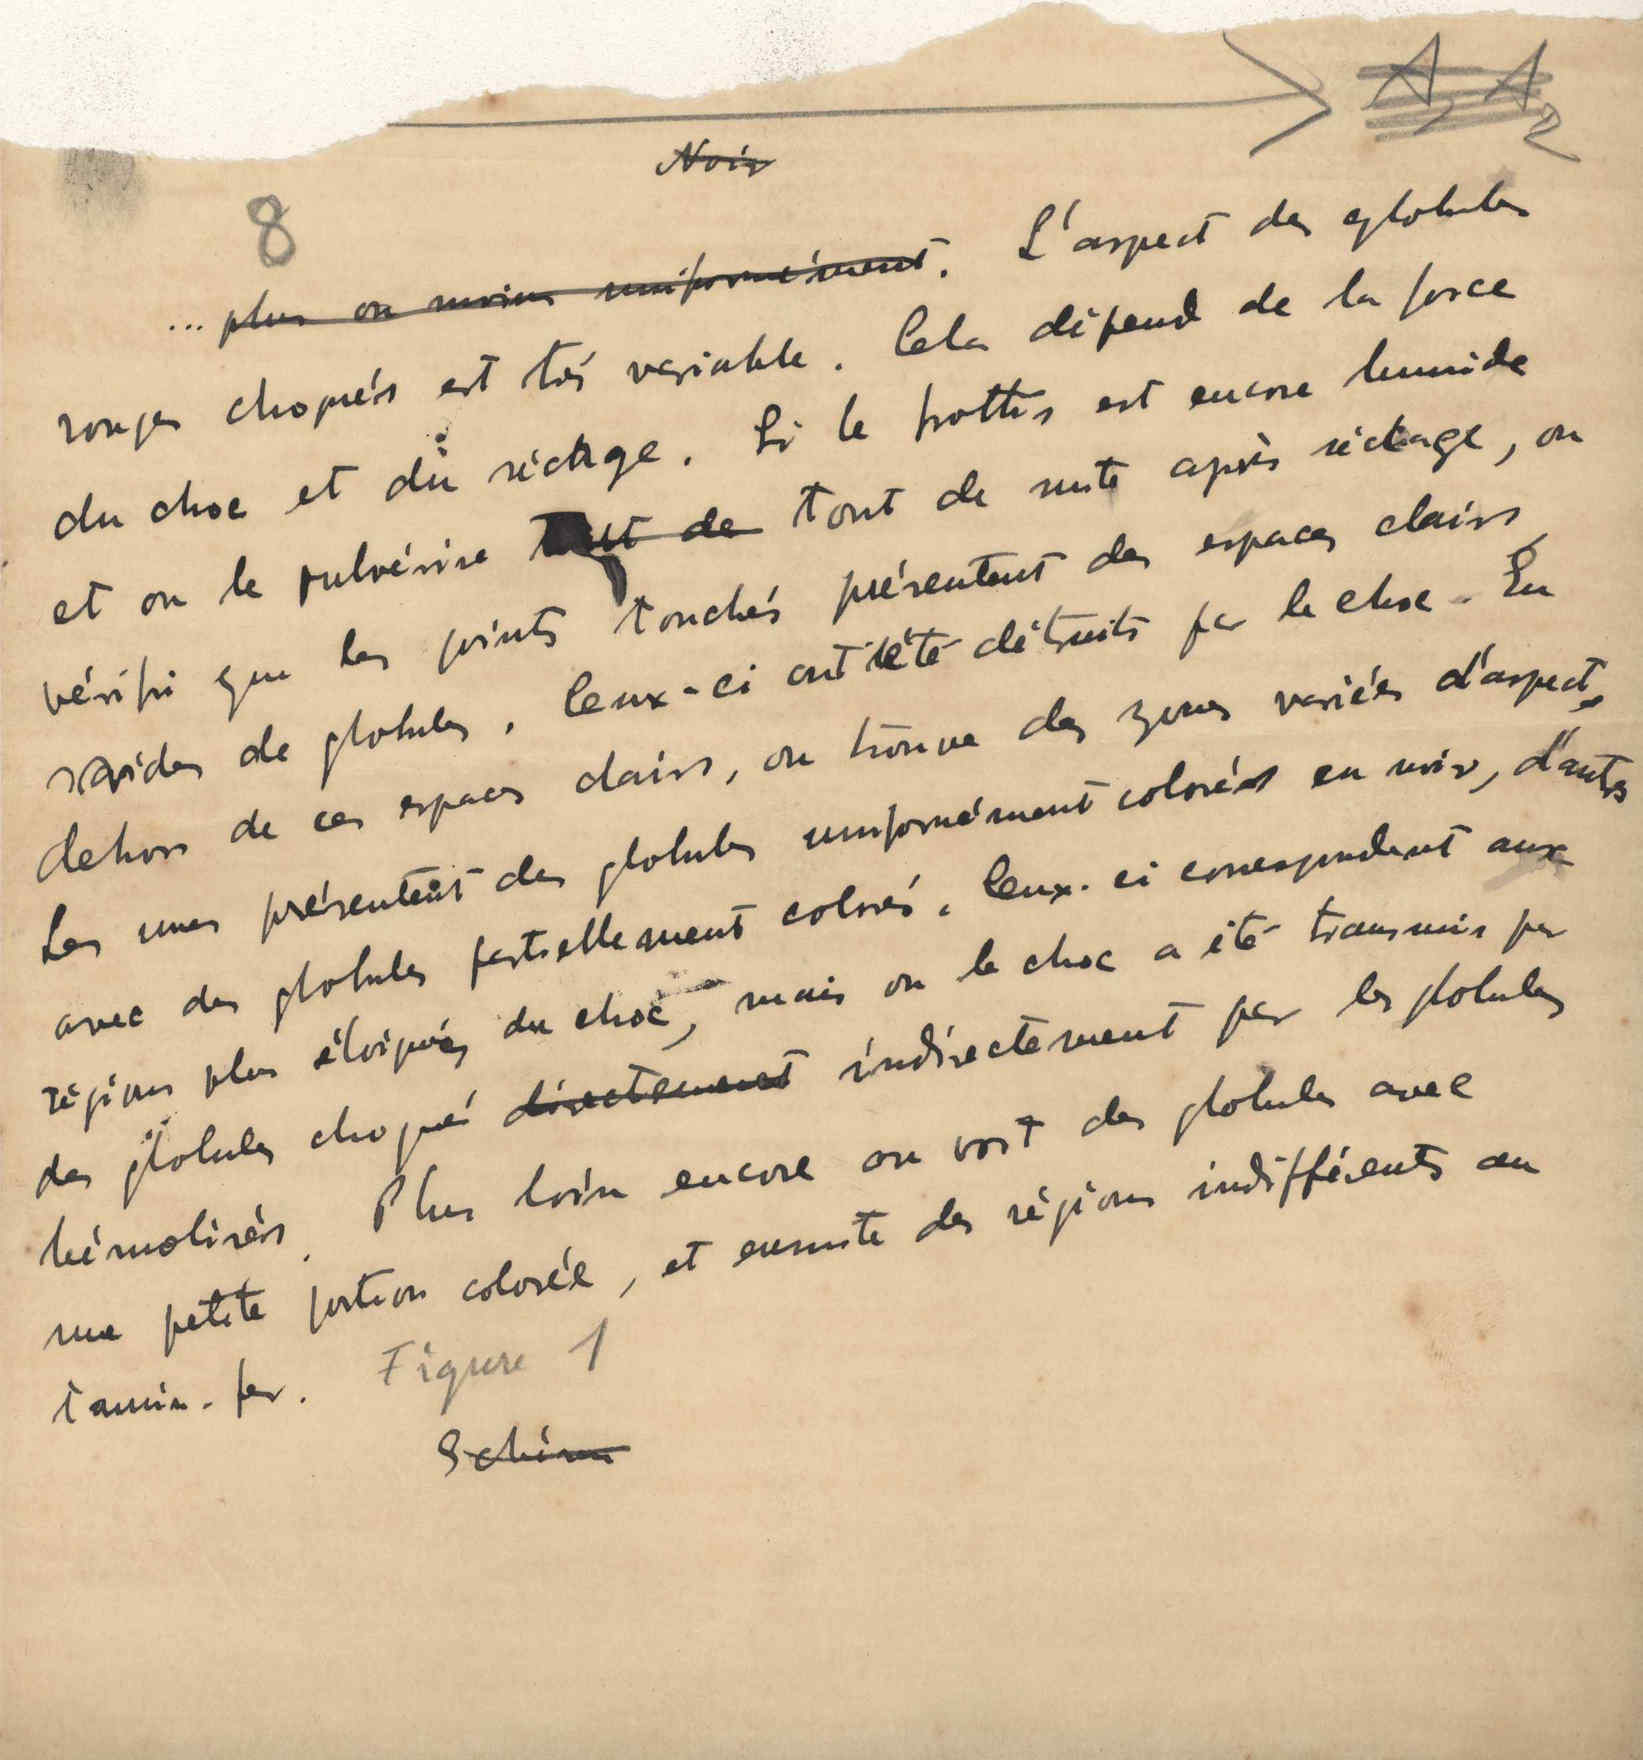 A, A2
Noir
8
... plus ou moins uniformément. L'aspect des globules
rouges choqués est très variable. Cela dépend de la force
du choc et du séchage. Si le frottis est encore humide
et on le pulvérise tout de tout de suite après séchage, on
vérifie que les points touchés présentent des espaces clairs,
vides de globules. Ceux-ci ont été détruits par le choc. En
dehors de ces espaces clairs, on trouve des zones variées d'aspect.
Les unes présentent des globules uniformément colorés en noir, d'autres
avec des globules partiellement colorés. Ceux-ci correspondent aux
régions plus éloignées du choc, mais ou le choc a été transmis par
des globules choqué directement indirectement par les globules
hémolisés. Plus loin encore on voit des globules avec
une petite portion colorée, et ensuite des régions indifférents au
tannin-fer. Figure 1
Schéma